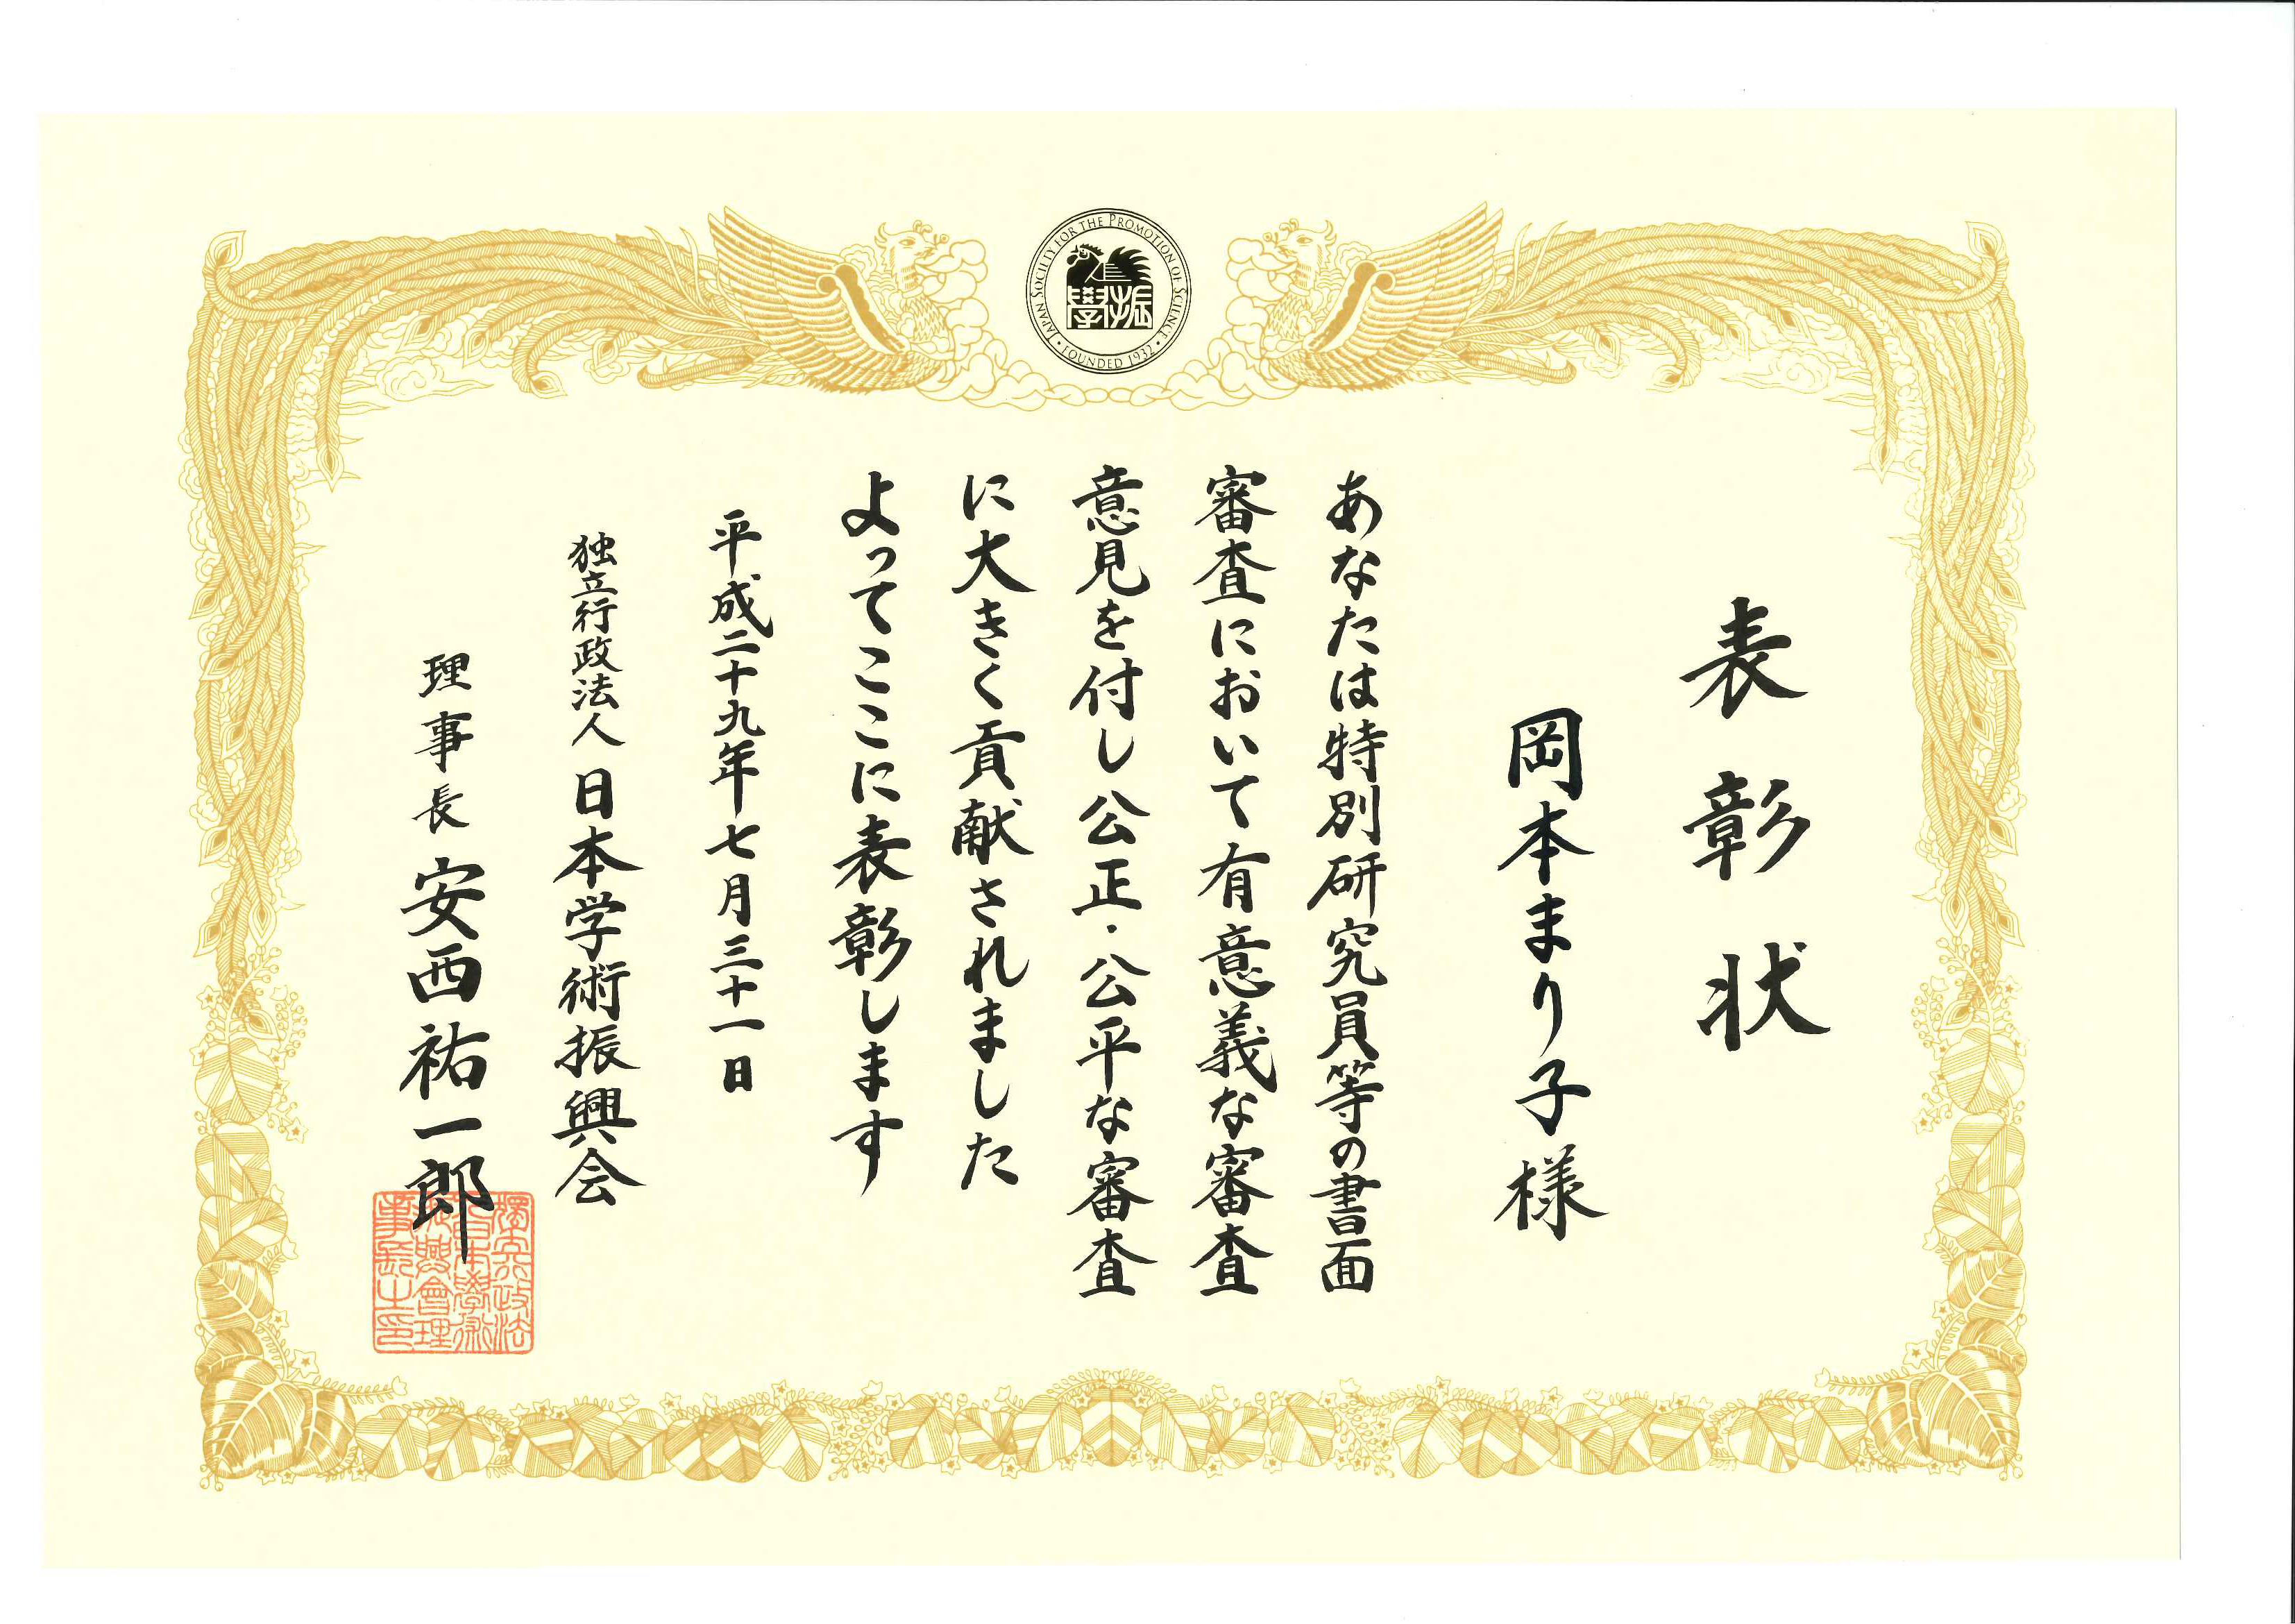 JAPAN SOCIETY FOR THE PROMOTION OF SCIENCE
FOUNDED 1932
學振
表彰状
岡本まり子様
あなたは特別研究員等の書面
審査において有意義な審査
意見を付し公正・公平な審査
に大きく貢献されました
よってここに表彰します
平成二十九年七月三十一日
独立行政法人日本学術振興会
理事長安西祐一郎